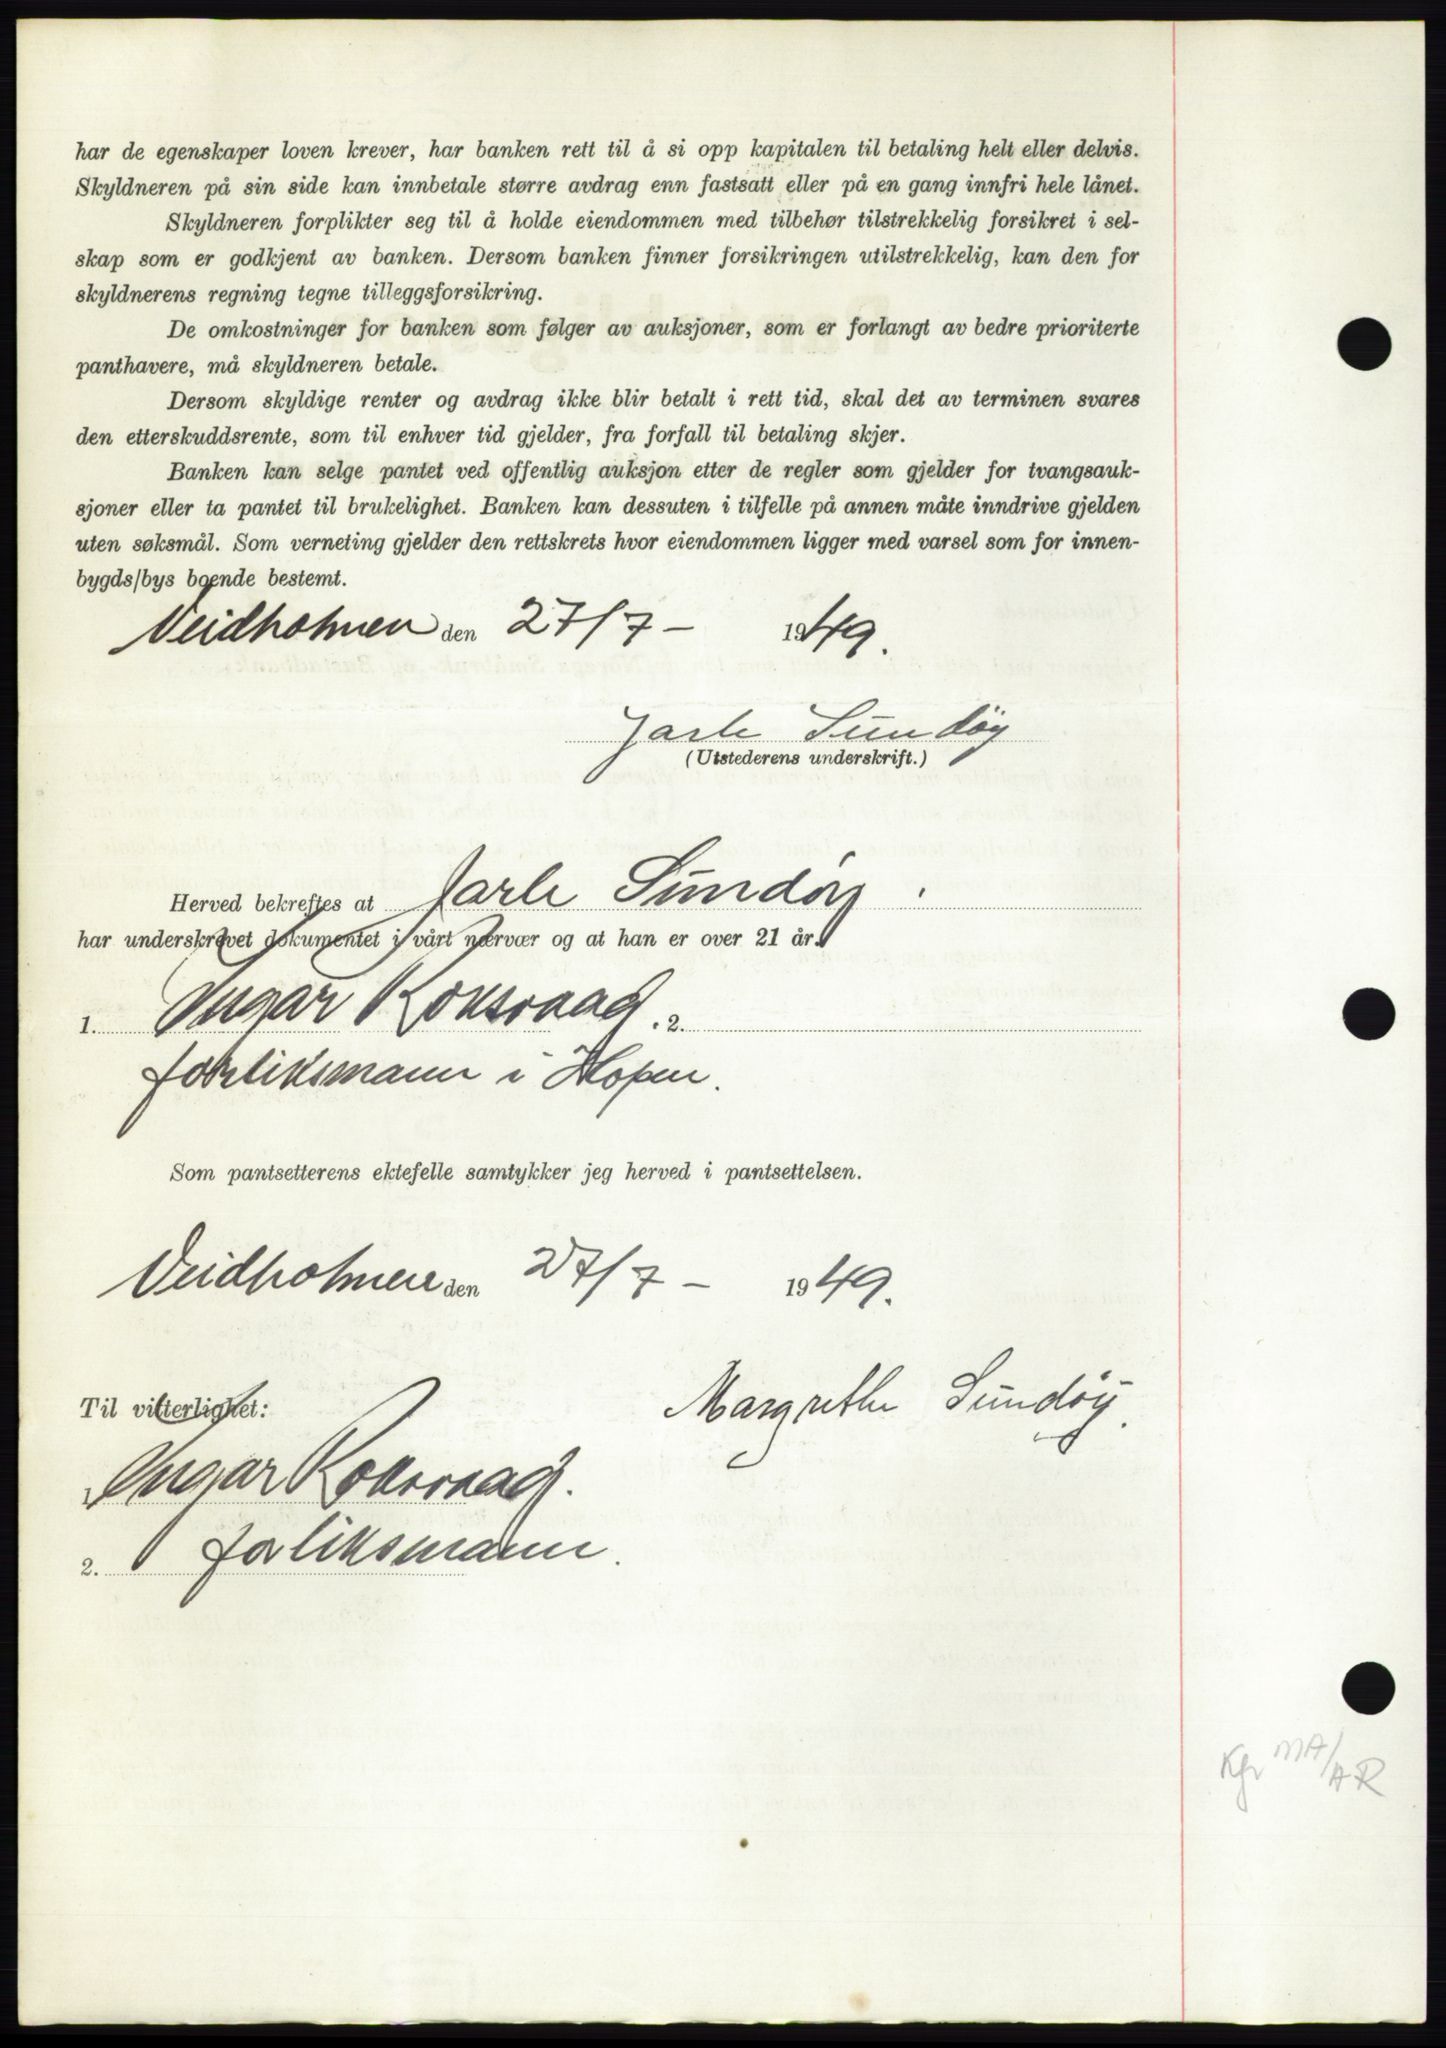 har de egenskaper loven krever, har banken rett til å si opp kapitalen til betaling helt eller delvis.
Skyldneren på sin side kan innbetale større avdrag enn fastsatt eller på en gang innfri hele lånet.
Skyldneren forplikter seg til å holde eiendommen med tilbehør tilstrekkelig forsikret i sel-
skap som er godkjent av banken. Dersom banken finner forsikringen utilstrekkelig, kan den for
skyldnerens regning tegne tilleggsforsikring.
De omkostninger for banken som følger av auksjoner, som er forlangt av bedre prioriterte
panthavere, må skyldneren betale.
Dersom skyldige renter og avdrag ikke blir betalt i rett tid, skal det av terminen svares
den etterskuddsrente, som til enhver tid gjelder, fra forfall til betaling skjer.
Banken kan selge pantet ved offentlig auksjon etter de regler som gjelder for tvangsauk-
sjoner eller ta pantet til brukelighet. Banken kan dessuten i tilfelle på annen måte inndrive gjelden
uten søksmål. Som verneting gjelder den rettskrets hvor eiendommen ligger med varsel som for innen-
bygds/bys boende bestemt.
Veidholmen den 27/7 - 1949.
Jarle Sundöy
(Utstederens underskrift.)
Herved bekreftes at Jarle Sundöy
har underskrevet dokumentet i vårt nærvær og at han er over 21 år.
1. Ingar Koksvaag. 2.
forliksmann i Hopen.
Som pantsetterens ektefelle samtykker jeg herved i pantsettelsen.
Veidholmen den 27/7 - 1949.
Margrethe Sundöy.
Til vitterlighet:
1. Ingar Koksvaag.
2. forliksmann.
Kfr MA/AR